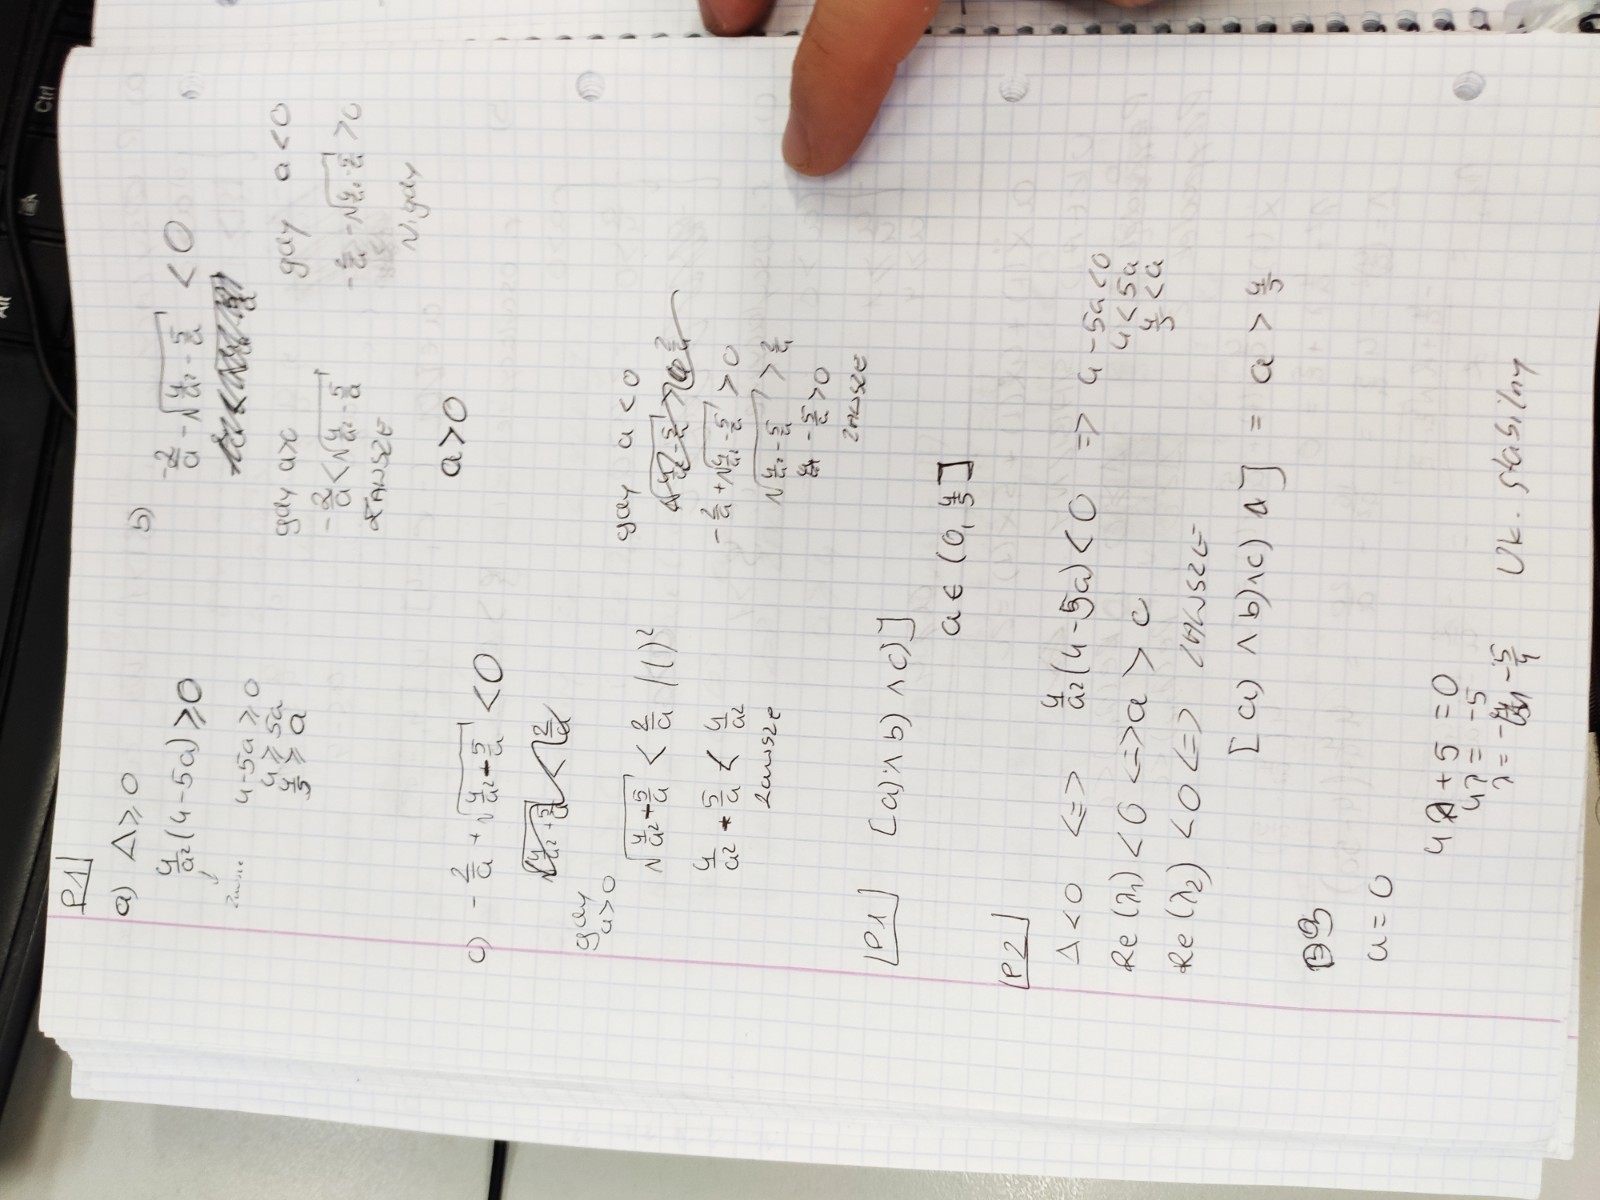 P1
a) Δ ≥ 0
4/a² (4 - 5a) ≥ 0
4 - 5a ≥ 0
4 ≥ 5a
4/5 ≥ a
b) -2/a - √(4/a² - 5/a) < 0
gdy a>0
-2/a < √(4/a² - 5/a)
ZAWSZE
gdy a < 0
-2/a - √(4/a² - 5/a) > 0
Nigdy
a > 0
c) -2/a + √(4/a² - 5/a) < 0
gdy a>0
√(4/a² - 5/a) < 2/a /()²
4/a² - 5/a < 4/a²
zawsze
gdy a < 0
-2/a + √(4/a² - 5/a) > 0
√(4/a² - 5/a) > 2/a
4/a² - 5/a > 0
ZAWSZE
P1 [a) ∧ b) ∧ c)]
a ∈ (0, 4/5]
P2
Δ < 0 <=> 4/a² (4 - 5a) < 0 => 4 - 5a < 0
4 < 5a
4/5 < a
Re(λ1) < 0 <=> a > 0
Re(λ2) < 0 <=> ZAWSZE
[a) ∧ b) ∧ c)] = a > 4/5
P3
a = 0
4λ + 5 = 0
4λ = -5
λ = -5/4 Uk. stabilny
Ctrl